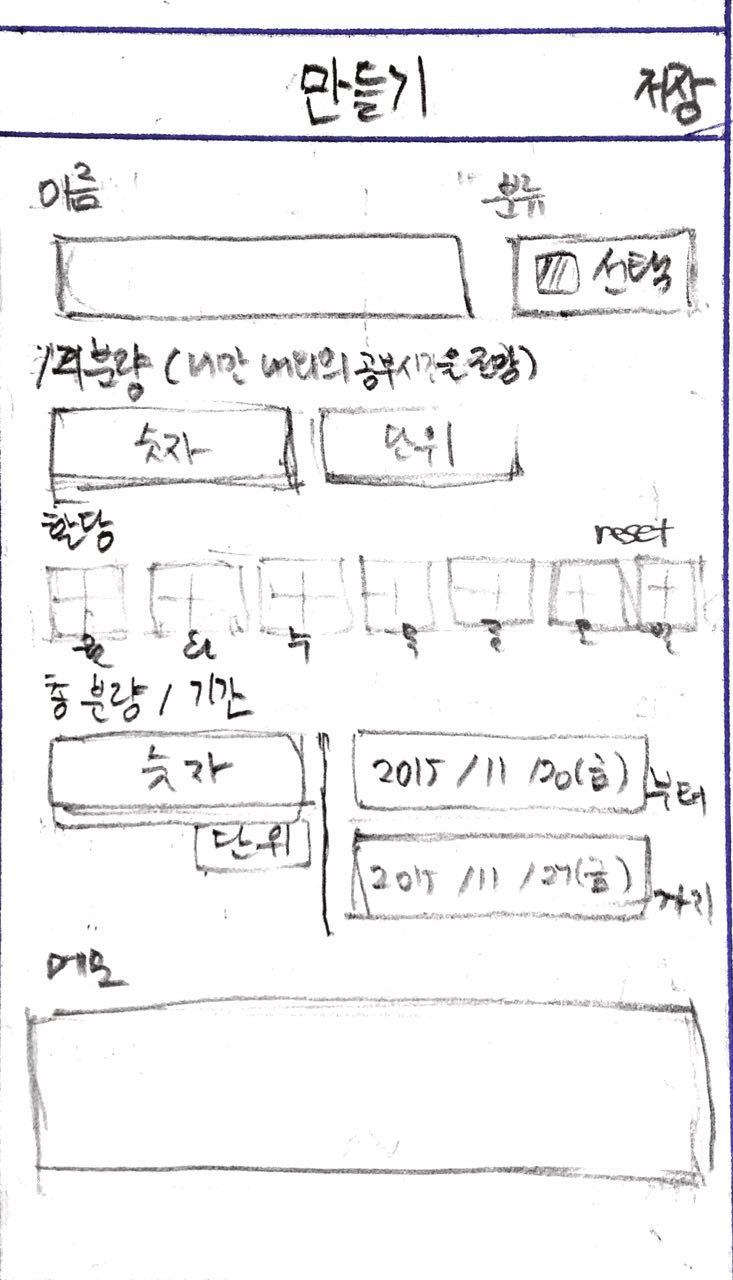 만들기 저장
이름 분류
선택
분량 ( 공부시간을
숫자 단위
할당 reset
월 화 수 목 금 토 일
총 분량 / 기간
숫자 2015 / 11 / 20(금) 부터
단위
2015 / 11 / 27(금) 까지
메모